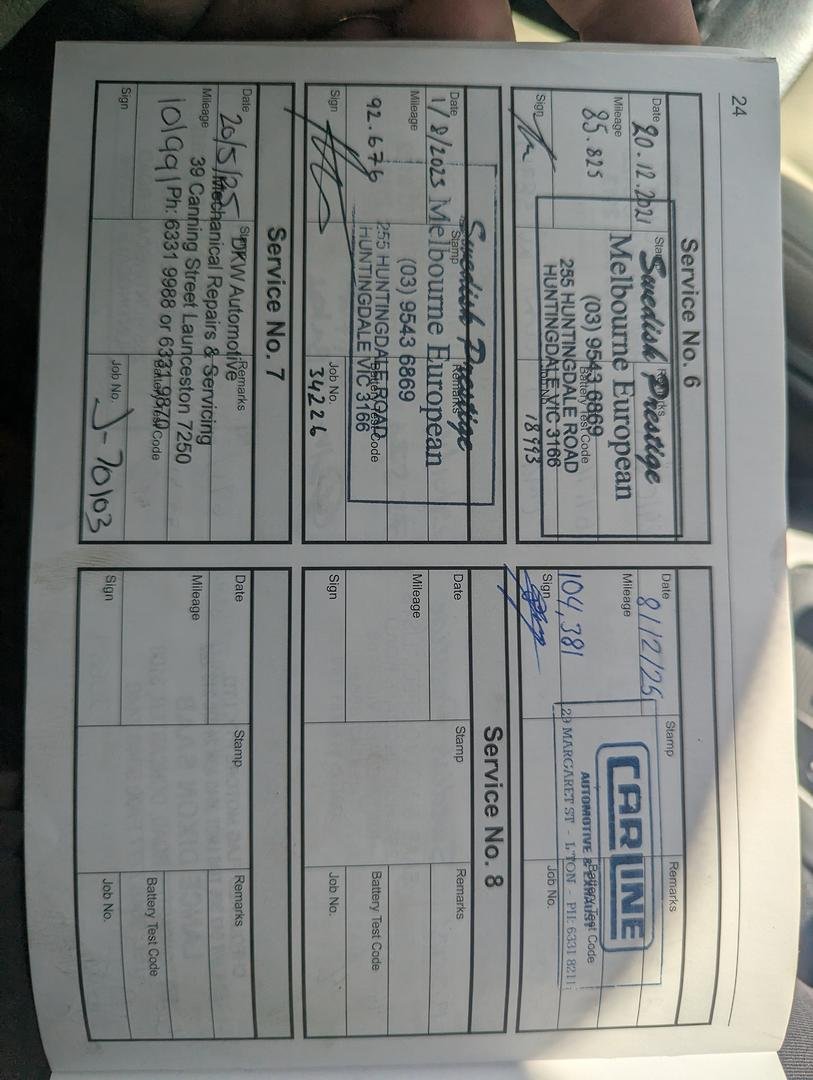 24
Service No. 6
Date 20.12.2021
Stamp
Remarks
Swedish Prestige
Mileage
85.825
Melbourne European
(03) 9543 6869
Battery Test Code
255 HUNTINGDALE ROAD
HUNTINGDALE VIC 3166
Sign
Job No. 18993
Date
1/8/2023
Stamp
Remarks
Swedish Prestige
Melbourne European
Mileage
92.676
(03) 9543 6869
Battery Test Code
255 HUNTINGDALE ROAD
HUNTINGDALE VIC 3166
Sign
Job No.
34226
Service No. 7
Date 20/5/25
Stamp
Remarks
DKW Automotive
Mechanical Repairs & Servicing
Mileage
101991
39 Canning Street Launceston 7250
Ph: 6331 9988 or 6331 9870
Battery Test Code
Sign
Job No. J-70103
Date 8/12/25
Stamp
Remarks
CARLINE
Mileage
104,381
AUTOMOTIVE & EXHAUST
Battery Test Code
29 MARGARET ST - L'TON - PH: 6331 8211
Sign
Job No.
Service No. 8
Date
Stamp
Remarks
Mileage
Battery Test Code
Sign
Job No.
Date
Stamp
Remarks
Mileage
Battery Test Code
Sign
Job No.